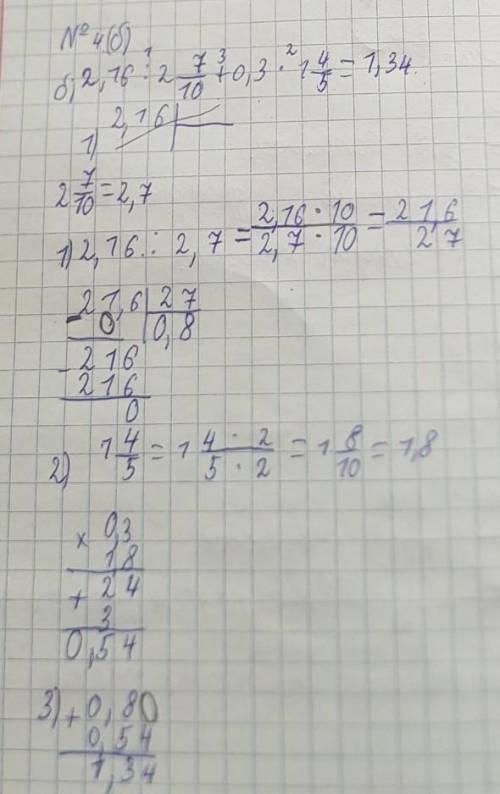 № 4(б)
б) 2,16 :¹ 2 7/10 +³ 0,3 ·² 1 4/5 = 1,34.
1) 2,16
2 7/10 = 2,7
1) 2,16 : 2,7 = 2,16 · 10 / 2,7 · 10 = 21,6 / 27
- 21,6 | 27
0 | 0,8
- 216
216
0
2) 1 4/5 = 1 4 · 2 / 5 · 2 = 1 8/10 = 1,8
× 0,3
1 8
+ 2 4
3
0,54
3) + 0,80
0,54
1,34